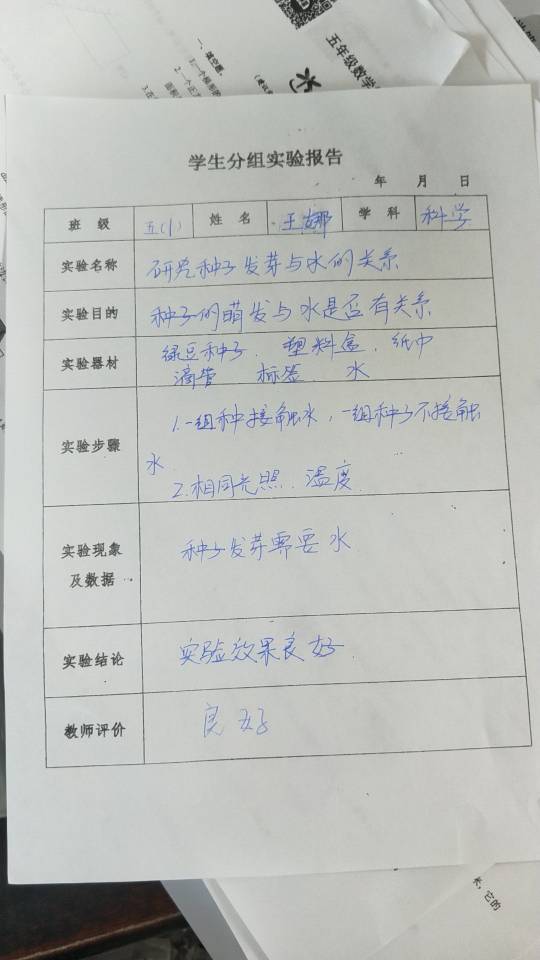 五年级数学
一、填空题。
学生分组实验报告
年 月 日
班 级 五(1) 姓 名 王娜 学 科 科学
实验名称 研究种子发芽与水的关系
实验目的 种子的萌发与水是否有关系
实验器材 绿豆种子、塑料盒、纸巾
滴管 标签 水
实验步骤 1.一组种接触水，一组种子不接触
水
2.相同光照、温度
实验现象
及数据 种子发芽需要水
实验结论 实验效果良好
教师评价 良好